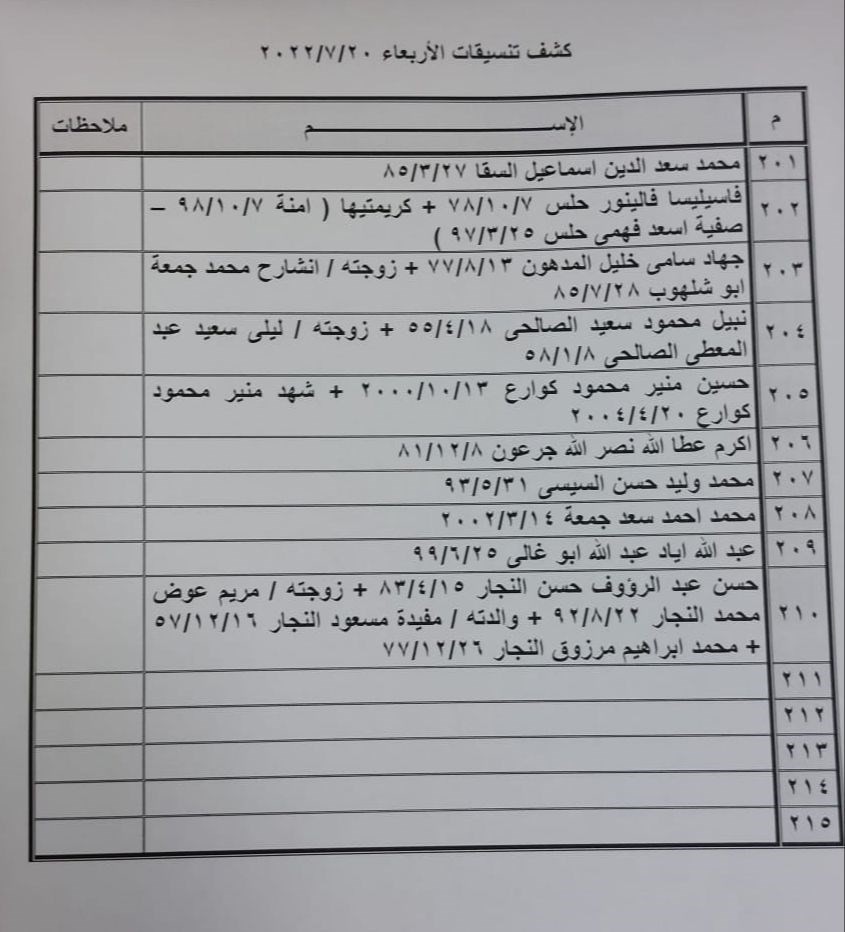 كشف تنسيقات الأربعاء ٢٠٢٢/٧/٢٠
م الإســـــــــــــــــم ملاحظات
٢٠١ محمد سعد الدين اسماعيل السقا ٨٥/٣/٢٧
٢٠٢ فاسيليسا فالينور حلس ٧٨/١٠/٧ + كريمتيها ( امنة ٩٨/١٠/٧ –
صفية اسعد فهمى حلس ٩٧/٣/٢٥ )
٢٠٣ جهاد سامى خليل المدهون ٧٧/٨/١٣ + زوجته / انشارح محمد جمعة
ابو شلهوب ٨٥/٧/٢٨
٢٠٤ نبيل محمود سعيد الصالحى ٥٥/٤/١٨ + زوجته / ليلى سعيد عبد
المعطى الصالحى ٥٨/١/٨
٢٠٥ حسين منير محمود كوارع ٢٠٠٠/١٠/١٣ + شهد منير محمود
كوارع ٢٠٠٤/٤/٢٠
٢٠٦ اكرم عطا الله نصر الله جرعون ٨١/١٢/٨
٢٠٧ محمد وليد حسن السيسى ٩٣/٥/٣١
٢٠٨ محمد احمد سعد جمعة ٢٠٠٢/٣/١٤
٢٠٩ عبد الله اياد عبد الله ابو غالى ٩٩/٦/٢٥
٢١٠ حسن عبد الرؤوف حسن النجار ٨٣/٤/١٥ + زوجته / مريم عوض
محمد النجار ٩٢/٨/٢٢ + والدته / مفيدة مسعود النجار ٥٧/١٢/١٦
+ محمد ابراهيم مرزوق النجار ٧٧/١٢/٢٦
٢١١
٢١٢
٢١٣
٢١٤
٢١٥